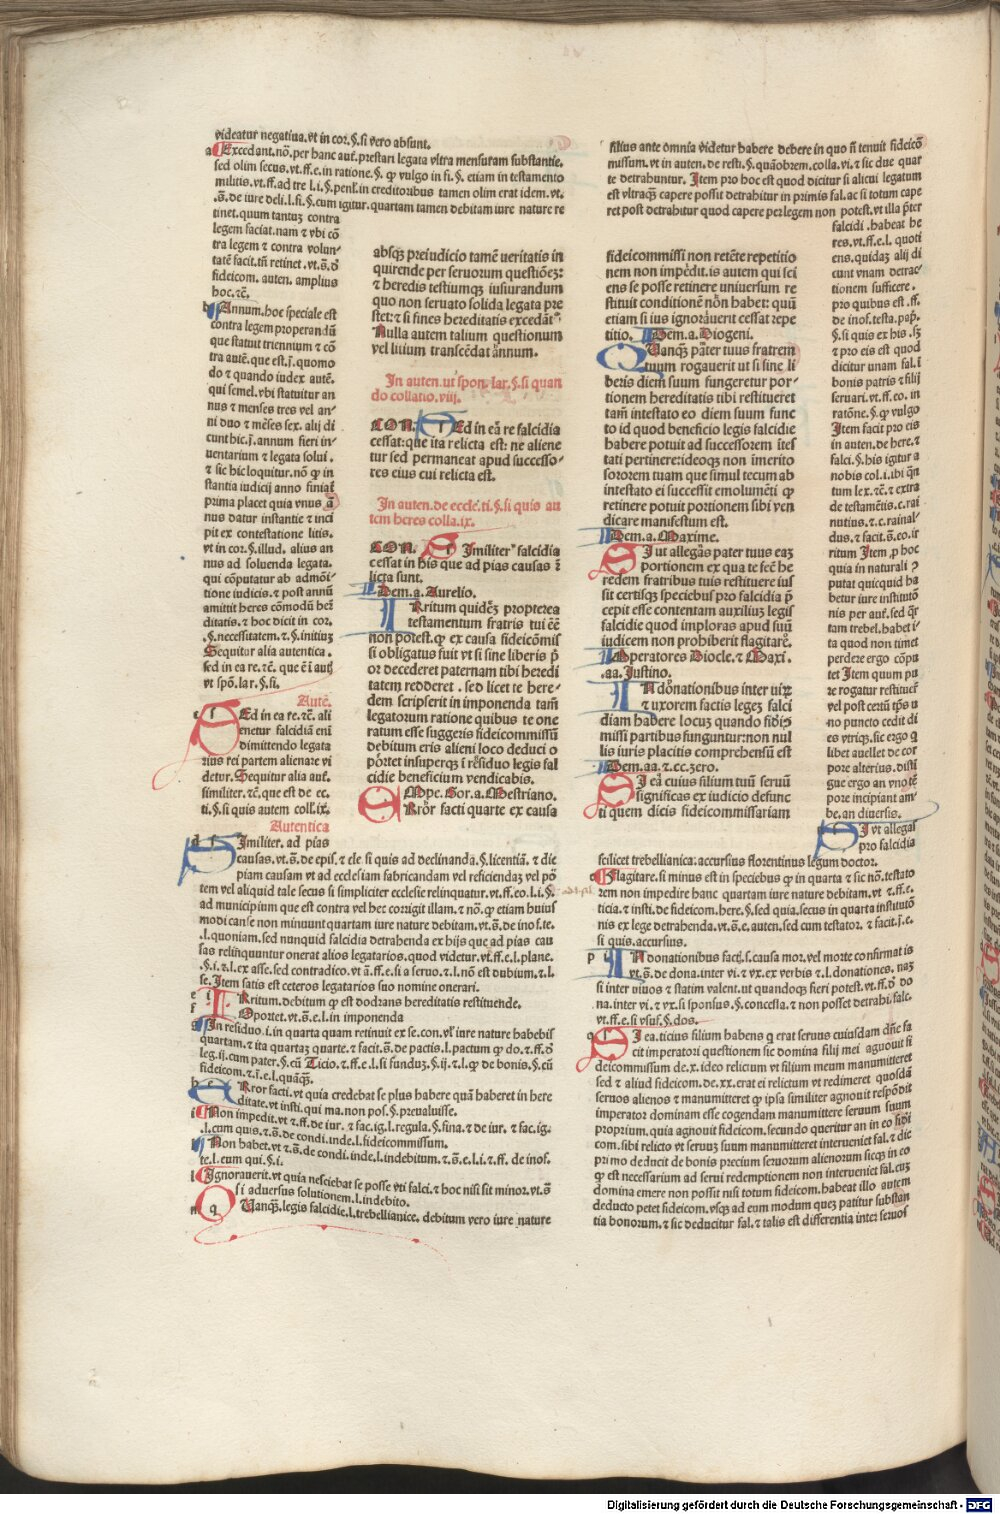 videatur negatiua. vt in cor. §. si vero absunt.
Excedant. nō. per hanc aut̄. prestari legata vltra mensuram substantie.
sed olim secus. vt. ff. e. in ratione. §. ꝙ vulgo in fi. §. etiam in testamento
militis. vt. ff. ad tre. l. i. §. penl̄. in creditoribus tamen olim erat idem. vt.
.S̄. de iure deli. l. fi. §. cum igitur. quartam tamen debitam iure nature re
tinet. quum tantuꝫ contra
legem faciat. nam ⁊ vbi cō
tra legem ⁊ contra volun-
tatē facit. tn̄ retinet. vt. S̄. ꝺ̄
fideicom. auten. amplius
hoc. ⁊c̄.
Annum. hoc speciale est
contra legem properandū
que statuit triennium ⁊ cō
tra autē. que est. j̄. quomo
do ⁊ quando iudex autē.
qui semel. vbi statuitur an
nus ⁊ menses tres vel an-
ni duo ⁊ mēses sex. alij di
cunt hic. j̄. annum fieri in-
uentarium ⁊ legata solui.
⁊ sic hic loquitur. nō ꝙ in
stantia iudicij anno finiat̄
prima placet quia vnus ā
nus datur instantie ⁊ inci
pit ex contestatione litis.
vt in cor. §. illud. alius an
nus ad soluenda legata.
qui cōputatur ab admōi-
tione iudicis. ⁊ post annū
amittit heres cōmodū her̄
ditatis. ⁊ hoc dicit in cor.
.§. necessitatem. ⁊. §. initiuꝫ
Sequitur alia autentica.
sed in ea re. ⁊c̄. que ē i aut̄
vt spō. lar. §. si.
Autē.
SEd in ea re. ⁊c̄. ali
enetur falcidiā eni
dimittendo legata
rius rei partem alienare vi
detur. Sequitur alia aut̄.
similiter. ⁊c̄. que est de ec.
ti. §. si quis autem coll. ix.
Autentica
SImiliter. ad pias
causas. vt. S̄. de epis. ⁊ cle si quis ad declinanda. §. licentiā. ⁊ dic
piam causam vt ad ecclesiam fabricandam vel reficiendaꝫ vel pō
tem vel aliquid tale secus si simpliciter ecclesie relinquatur. vt. ff. eo. l. i. §.
ad municipium que est contra vel hec corrigit illam. ⁊ nō. ꝙ etiam huius
modi cause non minuunt quartam iure nature debitam. vt. S̄. de inof. te.
.l. quoniam. sed nunquid falcidia detrahenda ex hijs que ad pias cau
sas relinquuntur onerat alios legatarios. quod videtur. vt. ff. e. l. plane.
.§. i. ⁊. l. ex asse. sed contradico. vt. S̄. ff. e. si a seruo. ⁊. l. nō est dubium. ⁊. l.
se. Item satis est ceteros legatarios suo nomine onerari.
IRritum. debitum ꝙ est dodrans hereditatis restituende.
Oportet. vt. S̄. e. l. in imponenda
In residuo. i. in quarta quam retinuit ex se. con. vl̓ iure nature habebis
quartam. ⁊ ita quartaꝫ quarte. ⁊ facit. S̄. de pactis. l. pactum ꝙ do. ⁊ ff. ꝺ̄
leg. ij. cum pater. §. cū Ticio. ⁊. ff. e. l. si funduꝫ. §. ij. ⁊. l. ꝙ de bonis. §. cū
fideicom. ⁊. i. e. l. quāqꝫ.
ERror facti. vt quia credebat se plus habere quā haberet in here
ditate. vt insti. qui ma. non pos. §. preualuisse.
Non impedit. vt ⁊ ff. de iur. ⁊ fac. ig. l. regula. §. fina. ⁊ de iur. ⁊ fac. ig.
.l. cum quis. ⁊. S̄. de condi. inde. l. fideicommissum.
Non habet. vt ⁊. S̄. de condi. inde. l. indebitum. ⁊. S̄. e. l. i. ⁊. ff. de inof.
te. l. cum qui. §. i.
Ignorauerit. vt quia nesciebat se posse vti falci. ⁊ hoc nisi sit minor. vt. S̄
si aduersus solutionem. l. indebito.
QVanqꝫ. legis falcidie. l. trebellianice. debitum vero iure nature
absqꝫ preiudicio tamē ueritatis in
quirende per seruorum questiōeꝫ:
⁊ heredis testiumqꝫ iusiurandum
quo non seruato solida legata pre
stet: ⁊ si fines hereditatis excedāt.
Nulla autem talium questionum
vel litium transcēdat annum.
In auten. ut spon. lar. §. si quan
do collatio. viij.
CON. SEd in eā re falcidia
cessat: que ita relicta est: ne aliene
tur sed permaneat apud successo-
res eius cui relicta est.
In auten. de eccle. ti. §. si quis au
tem heres colla. ix.
CON. SImiliter falcidia
cessat in his que ad pias causas ē
licta sunt.
Idem. a. Aurelio.
IRritum quidēꝫ propterea
testamentum fratris tui eē
non potest. ꝙ ex causa fideicōmis
si obligatus fuit vt si sine liberis p̄
oꝛ decederet paternam tibi heredi
tatem redderet. sed licet te here-
dem scripserit in imponenda tam̄
legatorum ratione quibus te one
ratum esse suggeris fideicommissū
debitum eris alieni loco deduci o
pōrtet insuperqꝫ ī rēsiduo legis fal
cidie beneficium vendicabis.
IMpe. Gor. a. Mestriano.
ERrōr facti quarte ex causa
fideicommissi non retēte repetitio
nem non impedit. is autem qui sci
ens se posse retinere uniuersum re
stituit conditionē nōn habet: quū
etiam si ius ignorauerit cessat repe
titio. Idem. a. Diogeni.
QVanqꝫ pāter tuus fratrem
tuum rogauerit ut si sine li
beris diem suum fungeretur por-
tionem hereditatis tibi restitueret
tam̄ intestato eo diem suum func
to id quod beneficio legis falcidie
habere potuit ad successorem ītes
tati pertinere: ideoqꝫ non īmerito
sororem tuam que simul tecum ab
intestato ei successit emolumēti ꝙ
retinere potuit portionem sibi ven
dicare manifestum est.
Idem. a. Maxime.
SI ut allegās pater tuus eaꝫ
portionem ex qua te fecī he
redem fratribus tuis restituere ius
sit certisqꝫ speciebus pro falcidia p̄
cepit esse contentam auxiliuꝫ legis
falcidie quod imploras apud suū
iudicem non prohiberit flagitarē.
Imperatores Diocle. ⁊ Maxi.
.aa. Justino.
IN dōnationibus inter uiꝝ
⁊ uxorem factis legeꝫ falci
diam habere locuꝫ quando fidēi
missi partibus funguntur: non nul
lis iuris placitis comprehensū est
Idem. aa. ⁊. cc. zero.
SI eā cuius filium tuū seruū
significas ex iudicio defunc
ti quem dicis fideicommissariam
filius ante omnia videtur habere debere in quo n̄ tenuit fideicō
missum. vt in auten. de resti. §. quāobrem. colla. vi. ⁊ sic due quar
te detrahuntur. Item pro hoc est quod dicitur si alicui legatum
est vltraqꝫ capere possit detrahitur in primis fal. ac si totum cape
ret post detrahitur quod capere per legem non potest. vt illa p̄ter
falcidi. habeat he
res. vt. ff. e. l. quoti
ens. quidaꝫ alij di
cunt vnam detrac-
tionem sufficere.
pro quibus est. ff.
de inof. testa. pap.
§. si quis ex his. s
⁊ pro eis est quod
dicitur unam fal. ī
bonis patris ⁊ filij
seruari. vt. ff. eo. in
ratōne. §. ꝙ vulgo
Item facit pro eis
in auten. de here. ⁊
falci. §. his igitur a
nobis col. i. ibi qn̄
tum lex. ⁊c̄. ⁊ extra
de testamētis. c. rai
nutius. ⁊. c. rainal
dus. ⁊ facit. S̄. eo. ir
ritum Item ꝓ hoc
quia in naturali ꝯ
putat quicquid ha
betur iure institutō
nis per aut̄. sed qr̄
tam trebel. habet i-
ta quod non timet
perdere ergo cōpu
tet Item quum pu
re rogatur restituer̄
vel post certū tp̄s u
no puncto cedit di
es vtriqꝫ. sic ergo q
libet auellet de cor
pore alterius. disti
gue ergo an vno tē
poꝛe incipiant am-
be. an diuersis.
SI vt allegas
pro falcidia
scilicet trebellianica: accursius florentinus legum doctor.
Flagitare. si minus est in speciebus ꝙ in quarta ⁊ sic nō. testato
rem non impedire hanc quartam iure nature debitam. vt ⁊. ff. e.
ticia. ⁊ insti. de fideicom. here. §. sed quia. secus in quarta institutō
nis ex lege detrahenda. vt. S̄. e. auten. sed cum testator. ⁊ facit. j̄. e.
si quis. accursius.
IN donationibus fact̓. s. causa mor. vel morte confirmat is
vt. S̄. de dona. inter vi. ⁊ vx. ex verbis ⁊. l. donationes. naꝫ
si inter viuos ⁊ statim valent. ut quandoqꝫ fieri potest. vt. ff. ꝺ̄ do
na. inter vi. ⁊ vx. si sponsus. §. concessa. ⁊ non posset detrahi. falc.
vt. ff. e. si vsuf. §. dos.
SI ea. ticius filium habens q erat seruus cuiusdam dn̄e fa
cit imperatori questionem sic domina filij mei agnouit si
deicommissum de. x. ideo relictum vt filium meum manumitteret
sed ⁊ aliud fideicom. de. xx. erat ei relictum vt redimeret quosdā
seruos alienos ⁊ manumitteret ꝙ ipsa similiter agnouit respōdit
imperator dominam esse cogendam manumittere seruum suum
proprium. quia agnouit fideicom. secundo queritur an in eo fidi
com. sibi relicto vt seruuꝫ suum manumitteret interueniet fal. ⁊ dic
primo deducit de bonis precium seruorum alienorum sicqꝫ in eo
ꝙ est necessarium ad serui redemptionem non interueniet fal. cuꝫ
domina emere non possit nisi totum fideicom. habeat illo autem
deducto petet fideicom. vsqꝫ ad eum modum queꝫ patitur substan
tia bonorum. ⁊ sic deducitur fal. ⁊ talis est differentia inter seruos
Digitalisierung gefördert durch die Deutsche Forschungsgemeinschaft - DFG